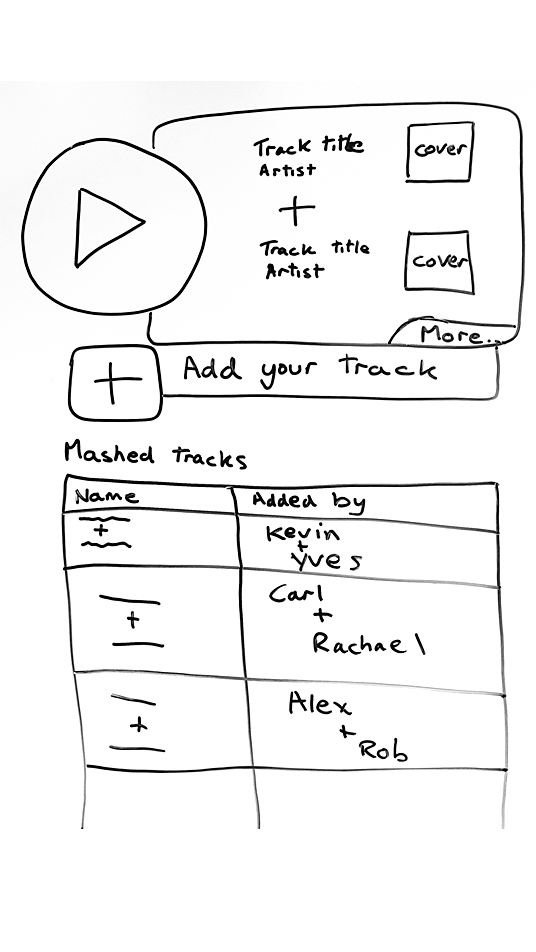 Track title
Artist
cover
+
Track title
Artist
cover
More..
+ Add your track
Mashed tracks
Name
Added by
+
Kevin
+
Yves
+
Carl
+
Rachael
+
Alex
+
Rob